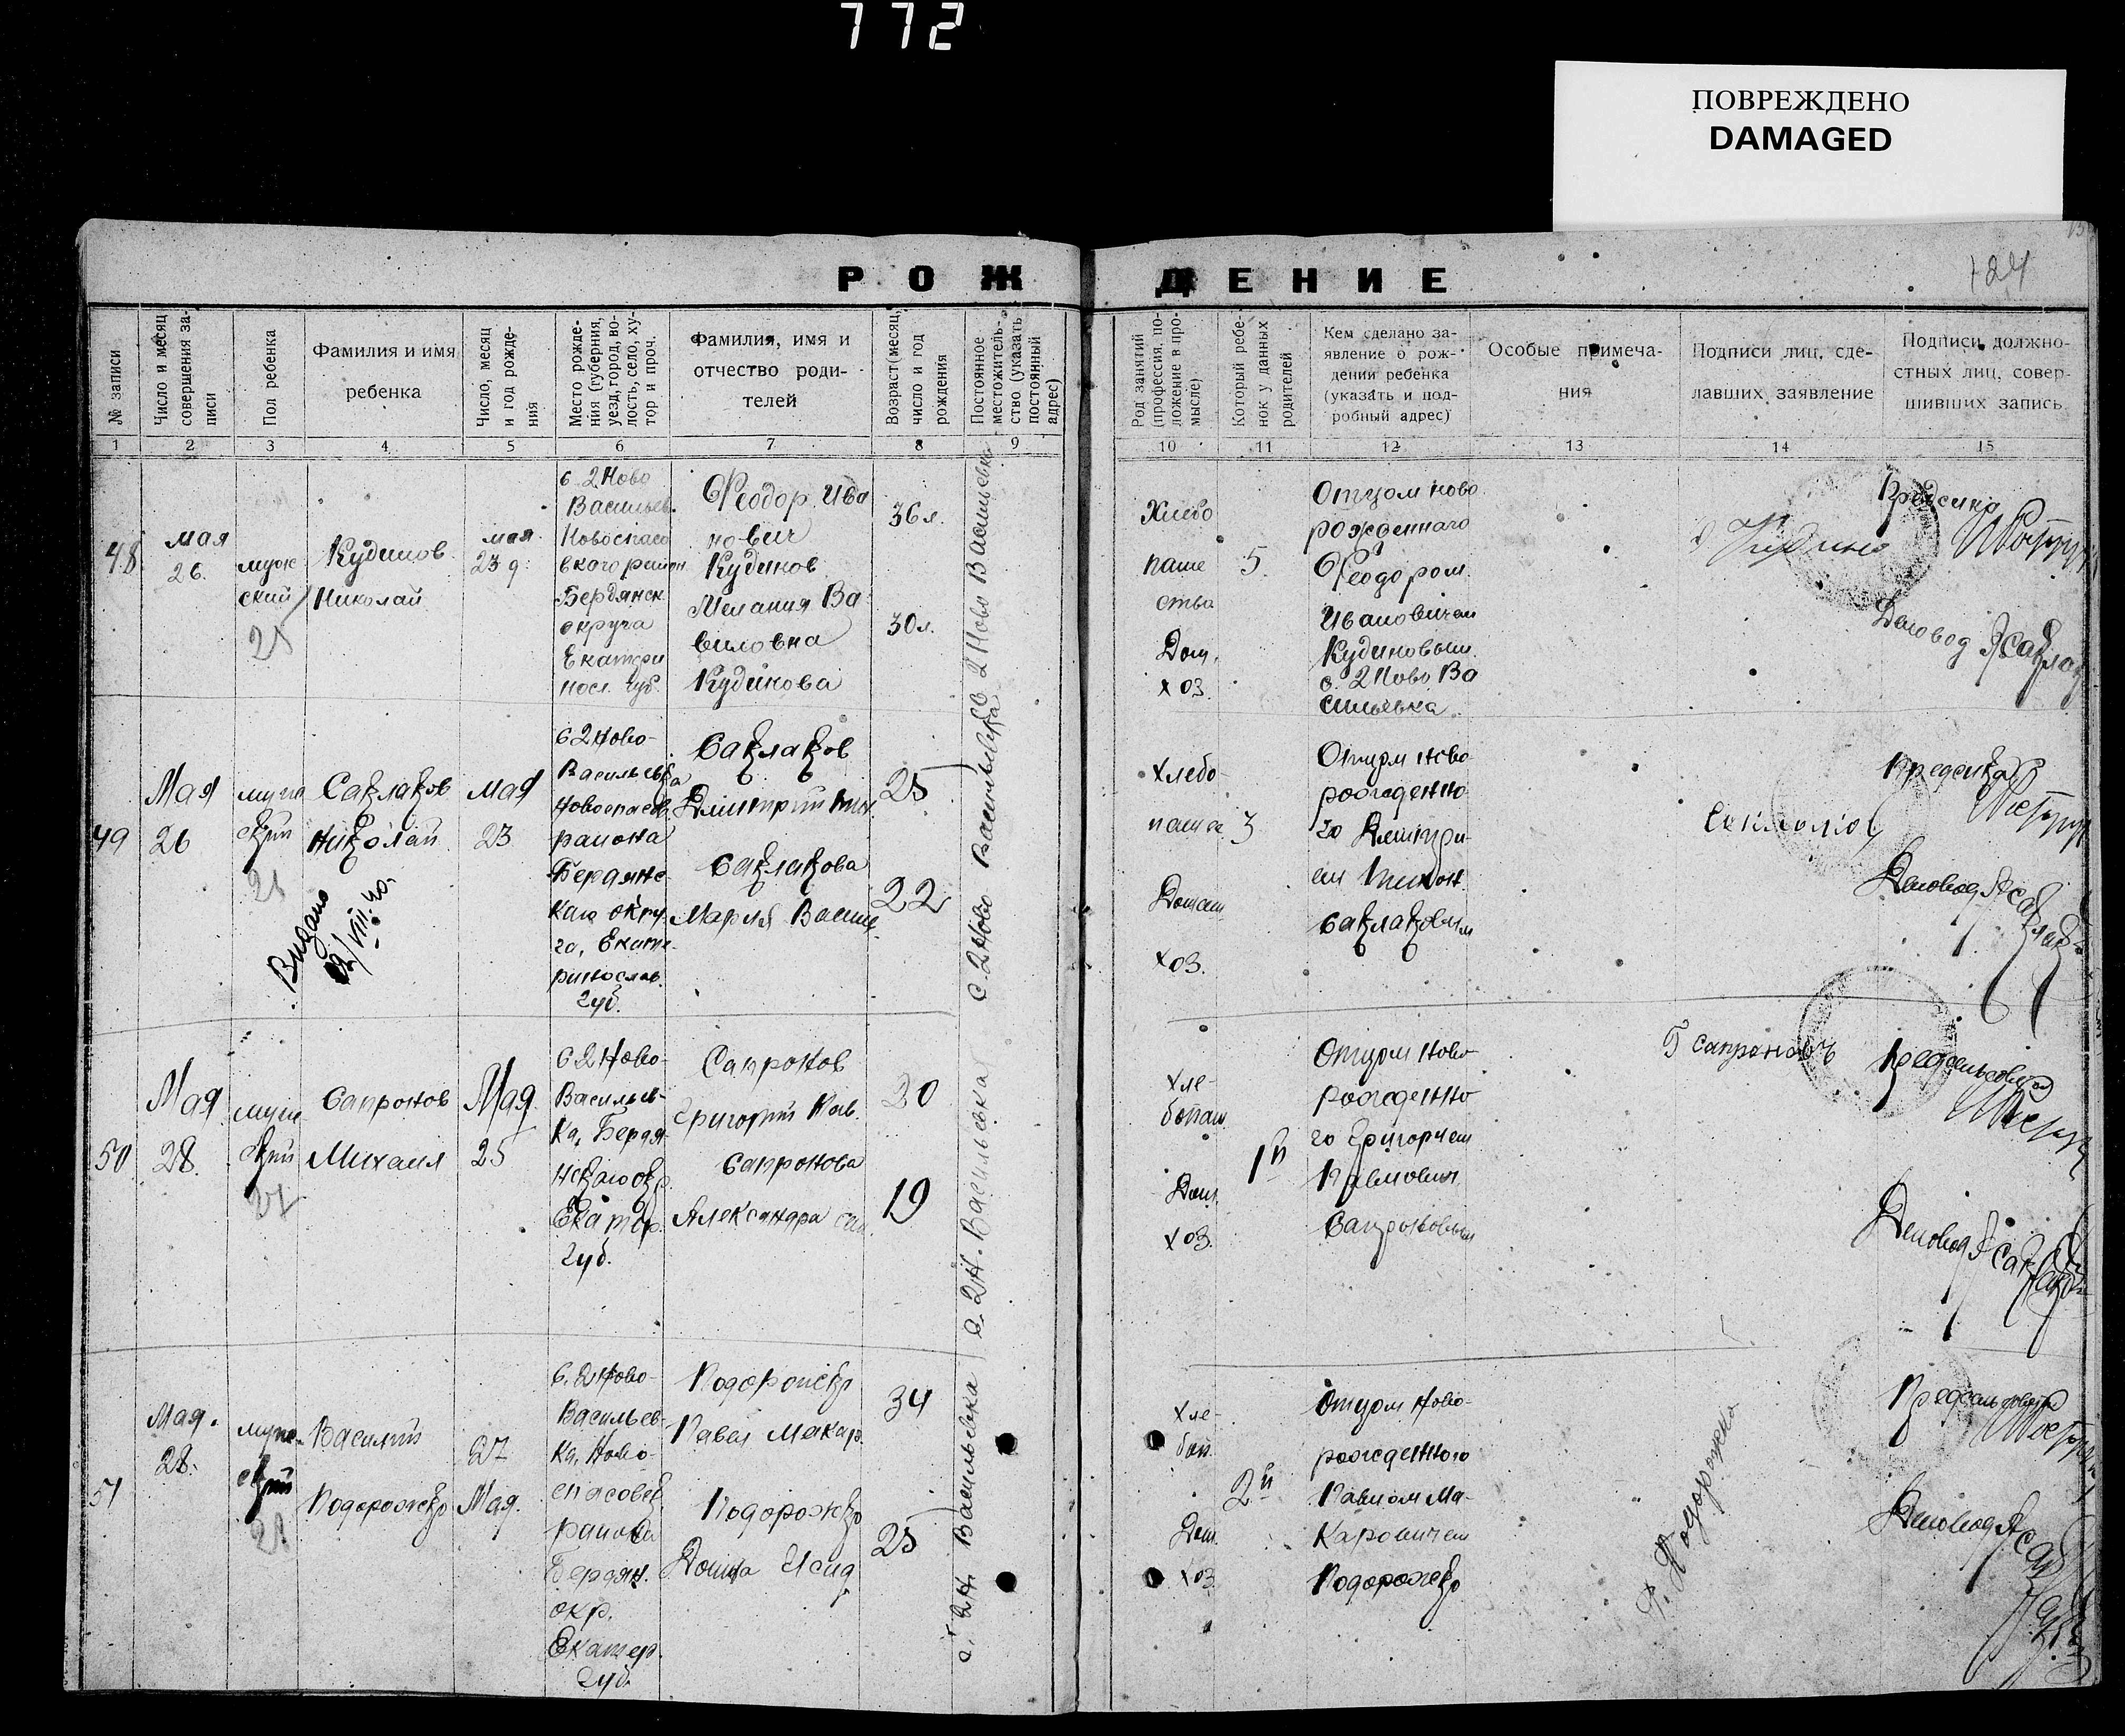 772
ПОВРЕЖДЕНО
DAMAGED
РОЖДЕНИЕ
124
№ записи
Число и месяц
совершения за-
писи
Пол ребенка
Фамилия и имя
ребенка
Число, месяц
и год рожде-
ния
Место рожде-
ния (губерния,
уезд, город, во-
лость, село, ху-
тор и проч.
Фамилия, имя и
отчество роди-
телей
Возраст (месяц,
число и год
рождения
Постоянное
местожитель-
ство (указать
постоянный
адрес)
Род занятий
(профессия, по-
ложение в про-
мысле)
Который ребе-
нок у данных
родителей
Кем сделано за-
явление о рож-
дении ребенка
(указать и под-
робный адрес)
Особые примеча-
ния
Подписи лиц, сде-
лавших заявление
Подписи должно-
стных лиц, совер-
шивших запись
1 2 3 4 5 6 7 8 9 10 11 12 13 14 15
48
мая
26.
муж
ский
Кудинов
Николай
мая
23 д.
с. 2 Ново
Васильев.
Новоспасо
вского район
Бердянск
округа
Екатери
носл. губ.
Феодор Ива
нович
Кудинов
Мелания Ва
виловна
Кудинова
36 л.
30 л.
с 2 Ново Васильевка
Хлебо
паше
ство
Дом.
хоз.
5
Отцом ново
рожденнаго
Феодором
Ивановичем
Кудиновым
с. 2 Ново Ва
сильевка
Деловод
49
Мая
26
муж
ский
Саклаков
Николай
Видано
мая
23
с 2 Ново-
Васильевка
Новоспасов.
района
Бердянс-
каго окру.
го, Екате-
ринослав.
губ.
Саклаков
Дмитрий Тих.
Саклакова
Мария Васил.
25
22
с. 2 Ново Васильевка
хлебо-
паш
Домаш
хоз.
3
Отцом ново
рожденно
го Дмитри-
ем Тихон.
Саклаковым
Деловод
50
Мая
28.
муж
ский
Сапронов
Михаил
Мая
25
с 2 Ново-
Васильев-
ка, Бердя-
нскаго окр.
Екатер.
губ.
Сапронов
Григорий Пав.
Сапронова
Александра
20
19
с. 2 Н. Васильевка
хле-
бопаш
Дом.
хоз.
1й
Отцом ново-
рожденно
го Григорием
Павлович.
Сапроновым
Г Сапроновъ
Деловод
51
Мая.
28.
муж.
ский
Василий
Подорожко
27
Мая.
с. 2 Ново-
Васильев-
ка, Ново-
спасовск.
района
Бердян.
окр.
Екатер.
губ.
Подорожко
Павел Макар.
Подорожко
Домна Исид
34
25
с. 2 Н. Васильевка
хле-
боп.
Дом.
хоз
2й
Отцом ново-
рожденного
Павлом Ма-
каровичем
Подорожко
Деловод